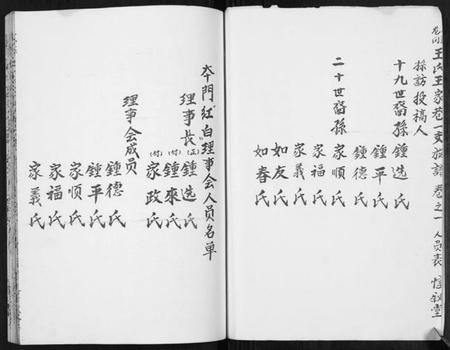 王氏王家巷一支族譜 卷之一 人員表 惇敘堂
採訪投稿人
十九世裔孫 鍾选氏
鍾平氏
鍾德氏
二十世裔孫 家順氏
家福氏
家義氏
如友氏
如春氏
本門紅白理事会人员名单
理事長(正) 鍾选氏
(付) 鍾來氏
(付) 家政氏
理事会成员 鍾德氏
鍾平氏
家順氏
家福氏
家義氏